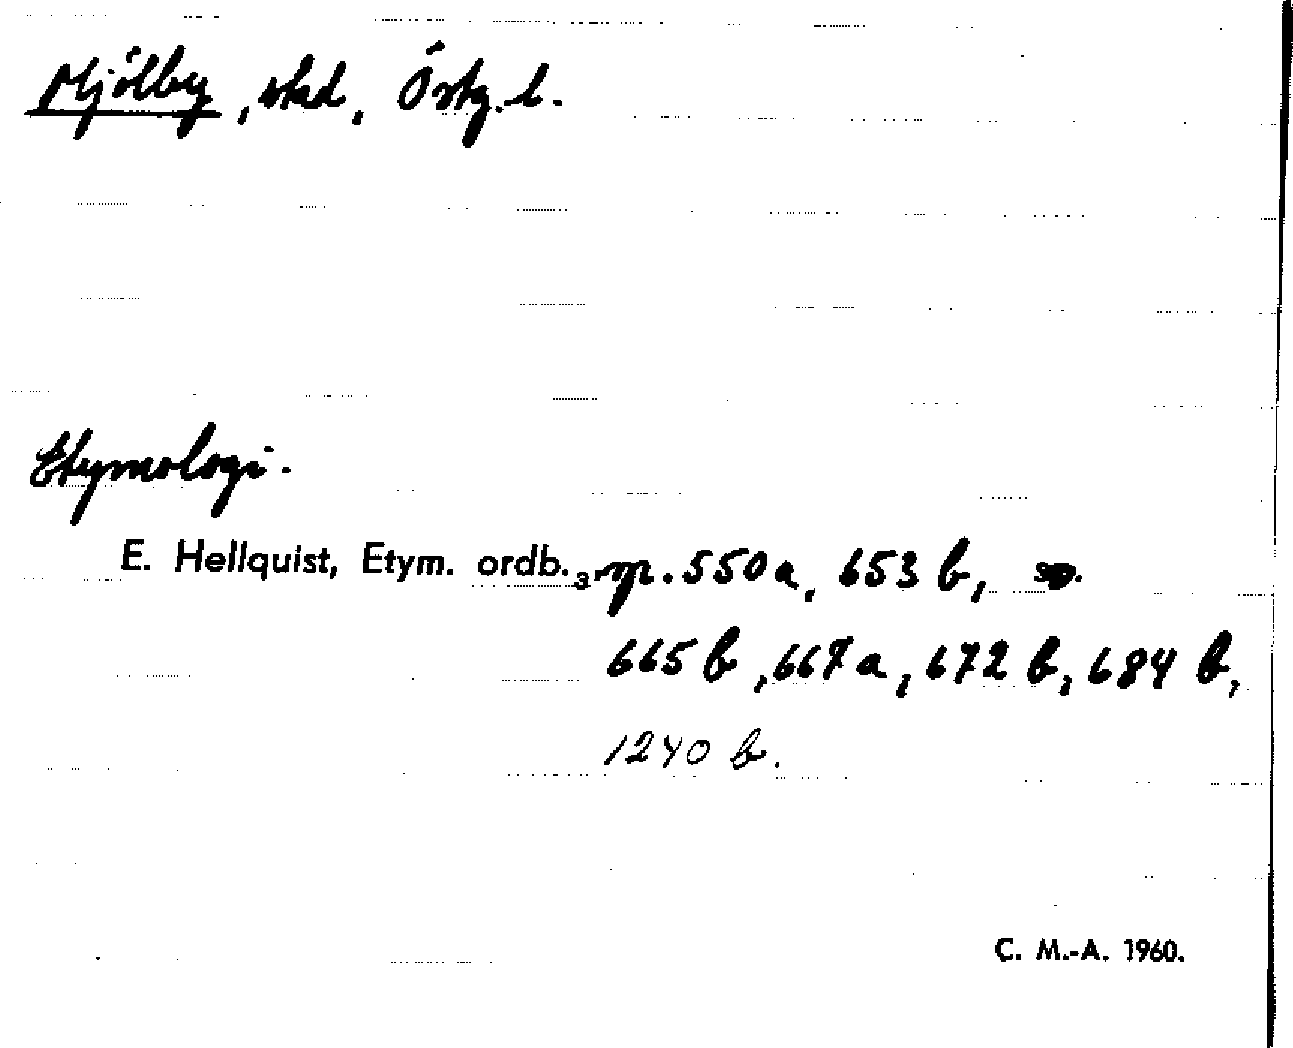 Mjölby, stad, Östg. l.
Etymologi.
E. Hellquist, Etym. ordb.₃, sp. 550 a, 653 b,
665 b, 667 a, 672 b, 684 b,
1240 b.
C. M.-A. 1960.